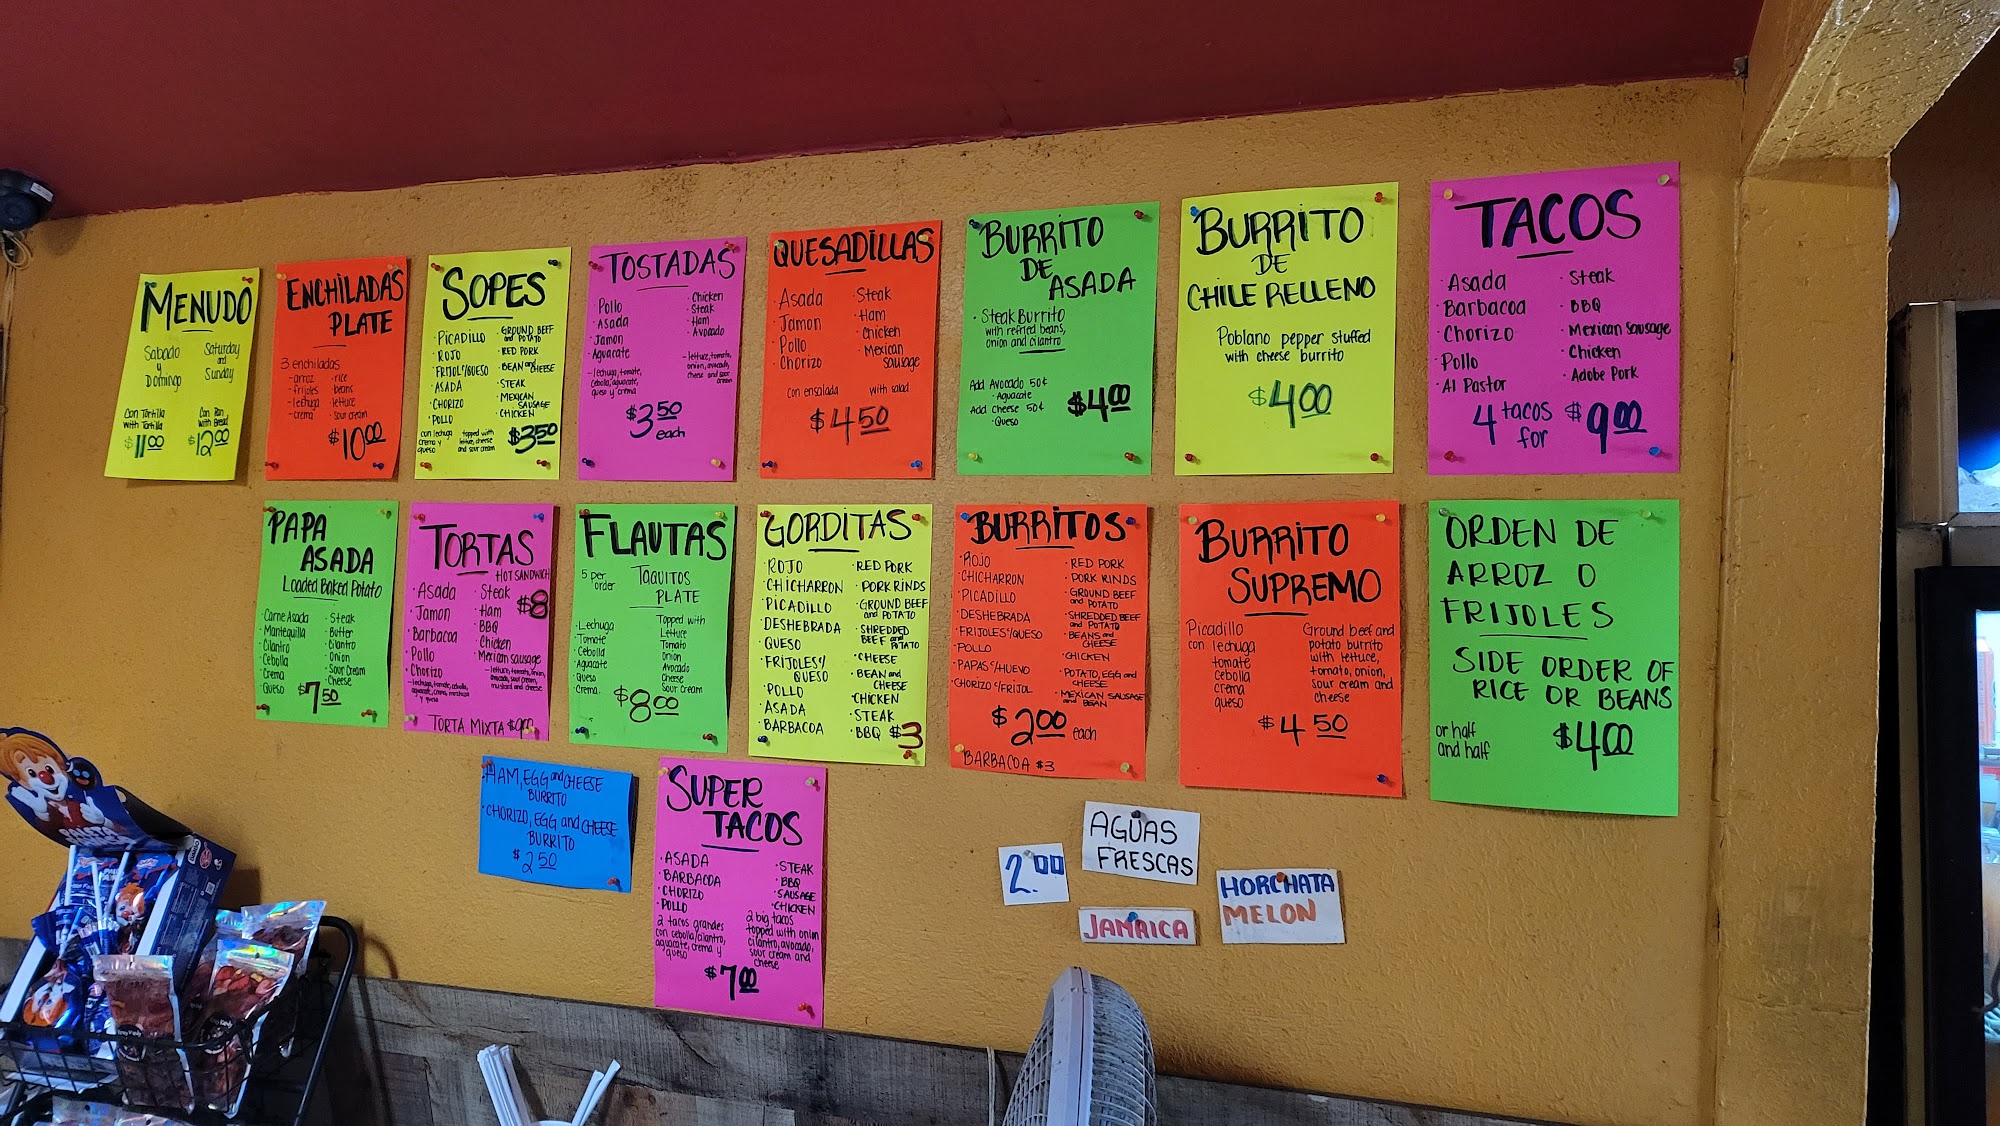 MENUDO
Sabado
y
Domingo
Saturday
and
Sunday
Con Tortilla
with Tortilla
$11.00
Con Pan
with Bread
$12.00
ENCHILADAS
PLATE
3 enchiladas
- arroz · rice
- frijoles · beans
- lechuga · lettuce
- crema · sour cream
$10.00
SOPES
· PICADILLO
· ROJO
· FRIJOL Y/QUESO
· ASADA
· CHORIZO
· POLLO
· GROUND BEEF
and POTATO
· RED PORK
· BEAN and CHEESE
· STEAK
· MEXICAN
SAUSAGE
· CHICKEN
con lechuga
crema y
queso
topped with
lettuce, cheese
and sour cream
$3.50
TOSTADAS
· Pollo
· Asada
· Jamon
· Aguacate
· Chicken
· Steak
· Ham
· Avocado
- lechuga, tomate,
cebolla, aguacate,
queso y crema
- lettuce, tomate,
onion, avocado,
cheese and sour
cream
$3.50
each
QUESADILLAS
· Asada
· Jamon
· Pollo
· Chorizo
· Steak
· Ham
· Chicken
· Mexican
Sausage
con ensalada with salad
$4.50
BURRITO
DE
ASADA
· Steak Burrito
with refried beans,
onion and cilantro
Add Avocado 50¢
· Aguacate
Add Cheese 50¢
· Queso
$4.00
BURRITO
DE
CHILE RELLENO
Poblano pepper stuffed
with cheese burrito
$4.00
TACOS
· Asada
· Barbacoa
· Chorizo
· Pollo
· Al Pastor
· Steak
· BBQ
· Mexican Sausage
· Chicken
· Adobe Pork
4 tacos
for
$9.00
PAPA
ASADA
Loaded Baked Potato
· Carne Asada
· Mantequilla
· Cilantro
· Cebolla
· Crema
· Queso
· Steak
· Butter
· Cilantro
· Onion
· Sour Cream
· Cheese
$7.50
TORTAS
HOT SANDWICH
$8
· Asada
· Jamon
· Barbacoa
· Pollo
· Chorizo
· Steak
· Ham
· BBQ
· Chicken
· Mexican Sausage
- lechuga, tomate, cebolla,
aguacate, crema, mostaza
y queso
- lettuce, tomato, onion,
avocado, sour cream,
mustard and cheese
TORTA MIXTA $9.00
FLAUTAS
5 per
order
TAQUITOS
PLATE
· Lechuga
· Tomate
· Cebolla
· Aguacate
· Queso
· Crema
Topped with
Lettuce
Tomato
Onion
Avocado
Cheese
Sour Cream
$8.00
GORDITAS
· ROJO
· CHICHARRON
· PICADILLO
· DESHEBRADA
· QUESO
· FRIJOLES Y/
QUESO
· POLLO
· ASADA
· BARBACOA
· RED PORK
· PORK RINDS
· GROUND BEEF
and POTATO
· SHREDDED
BEEF and
POTATO
· CHEESE
· BEAN and
CHEESE
· CHICKEN
· STEAK
· BBQ $3
BURRITOS
· ROJO
· CHICHARRON
· PICADILLO
· DESHEBRADA
· FRIJOLES Y/QUESO
· POLLO
· PAPAS C/HUEVO
· CHORIZO C/FRIJOL
· RED PORK
· PORK RINDS
· GROUND BEEF
and POTATO
· SHREDDED BEEF
and POTATO
· BEANS and
CHEESE
· CHICKEN
· POTATO, EGG and
CHEESE
· MEXICAN SAUSAGE
and BEAN
$2.00 each
BARBACOA $3
BURRITO
SUPREMO
Picadillo
con lechuga
tomate
cebolla
crema
queso
Ground beef and
potato burrito
with lettuce,
tomato, onion,
sour cream and
cheese
$4.50
ORDEN DE
ARROZ O
FRIJOLES
SIDE ORDER OF
RICE OR BEANS
or half
and half
$4.00
· HAM, EGG and CHEESE
BURRITO
· CHORIZO, EGG and CHEESE
BURRITO
$2.50
SUPER
TACOS
· ASADA
· BARBACOA
· CHORIZO
· POLLO
· STEAK
· BBQ
· SAUSAGE
· CHICKEN
2 tacos grandes
con cebolla/cilantro,
aguacate, crema y
queso
2 big tacos
topped with onion
cilantro, avocado,
sour cream and
cheese
$7.00
2.00
AGUAS
FRESCAS
JAMAICA
HORCHATA
MELON